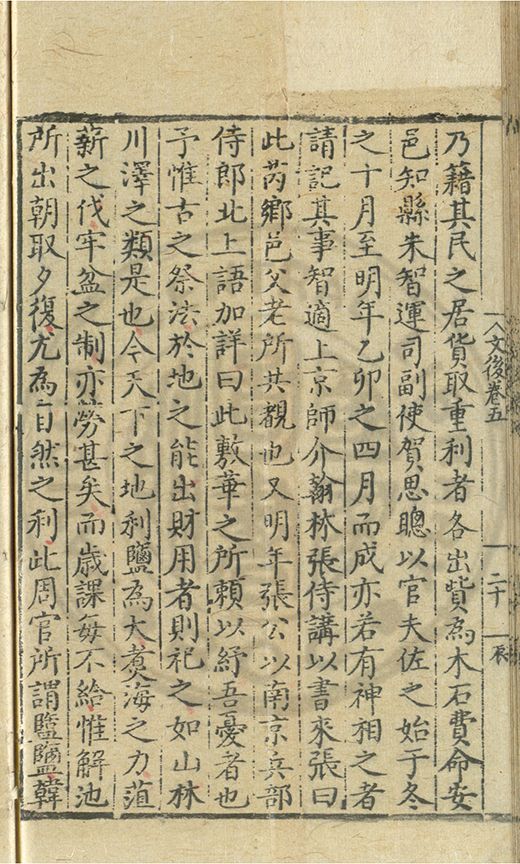 〈文後卷五
二十
辰
乃籍其民之居貨取重利者各出貲為木石費命安
邑知縣朱智運司副使賀思聰以官夫佐之始于冬
之十月至明年乙卯之四月而成亦若有神相之者
請記其事智適上京師介翰林張侍講以書來張曰
此芮鄉邑父老所共觀也又明年張公以南京兵部
侍郎北上語加詳曰此敷華之所賴以紓吾憂者也
予惟古之祭法於地之能出財用者則祀之如山林
川澤之類是也今天下之地利鹽為大煑海之力萑
薪之伐牢盆之制亦勞甚矣而歲課毎不給惟解池
所出朝取夕復尤為自然之利此周官所謂盬鹽韓